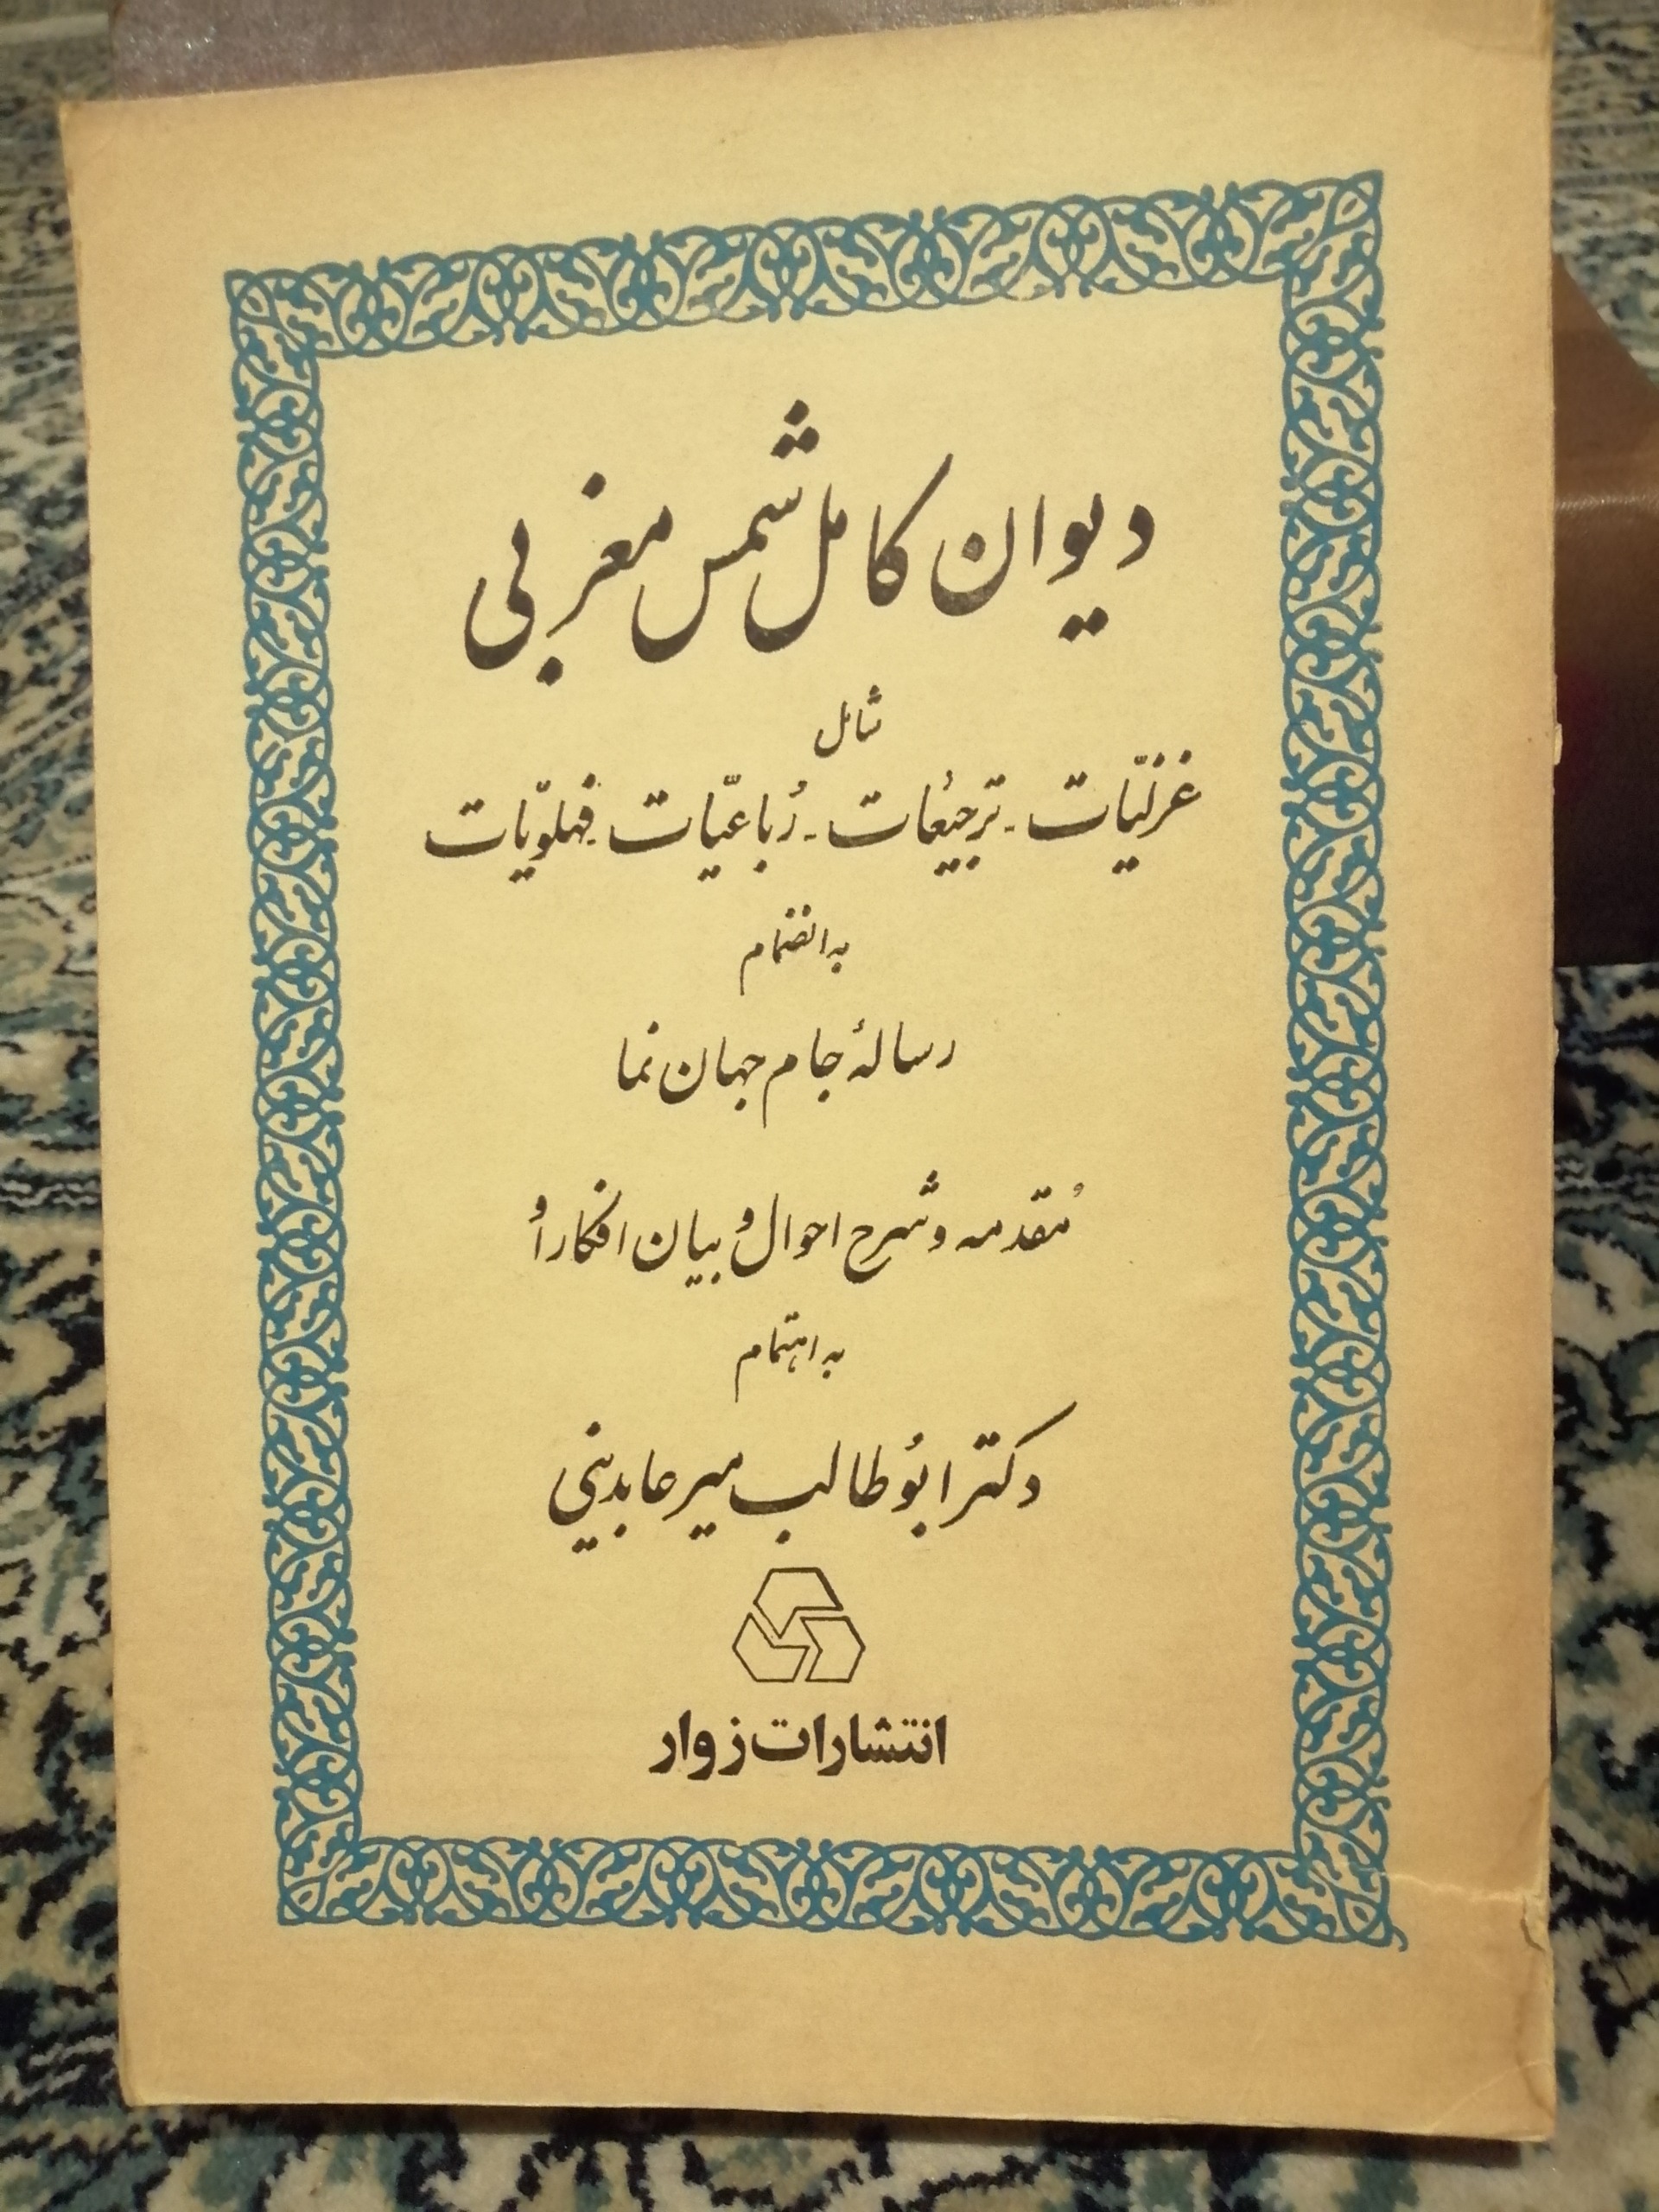 دیوان کامل شمس مغربی
شامل
غزلیّات - ترجیعات - رُباعیّات - فهلویّات
به انضمام
رسالهٔ جام جهان نما
مُقدمه و شرح احوال و بیان افکار اُو
به اهتمام
دکتر ابُوطالب میرعابدینی
انتشارات زوار